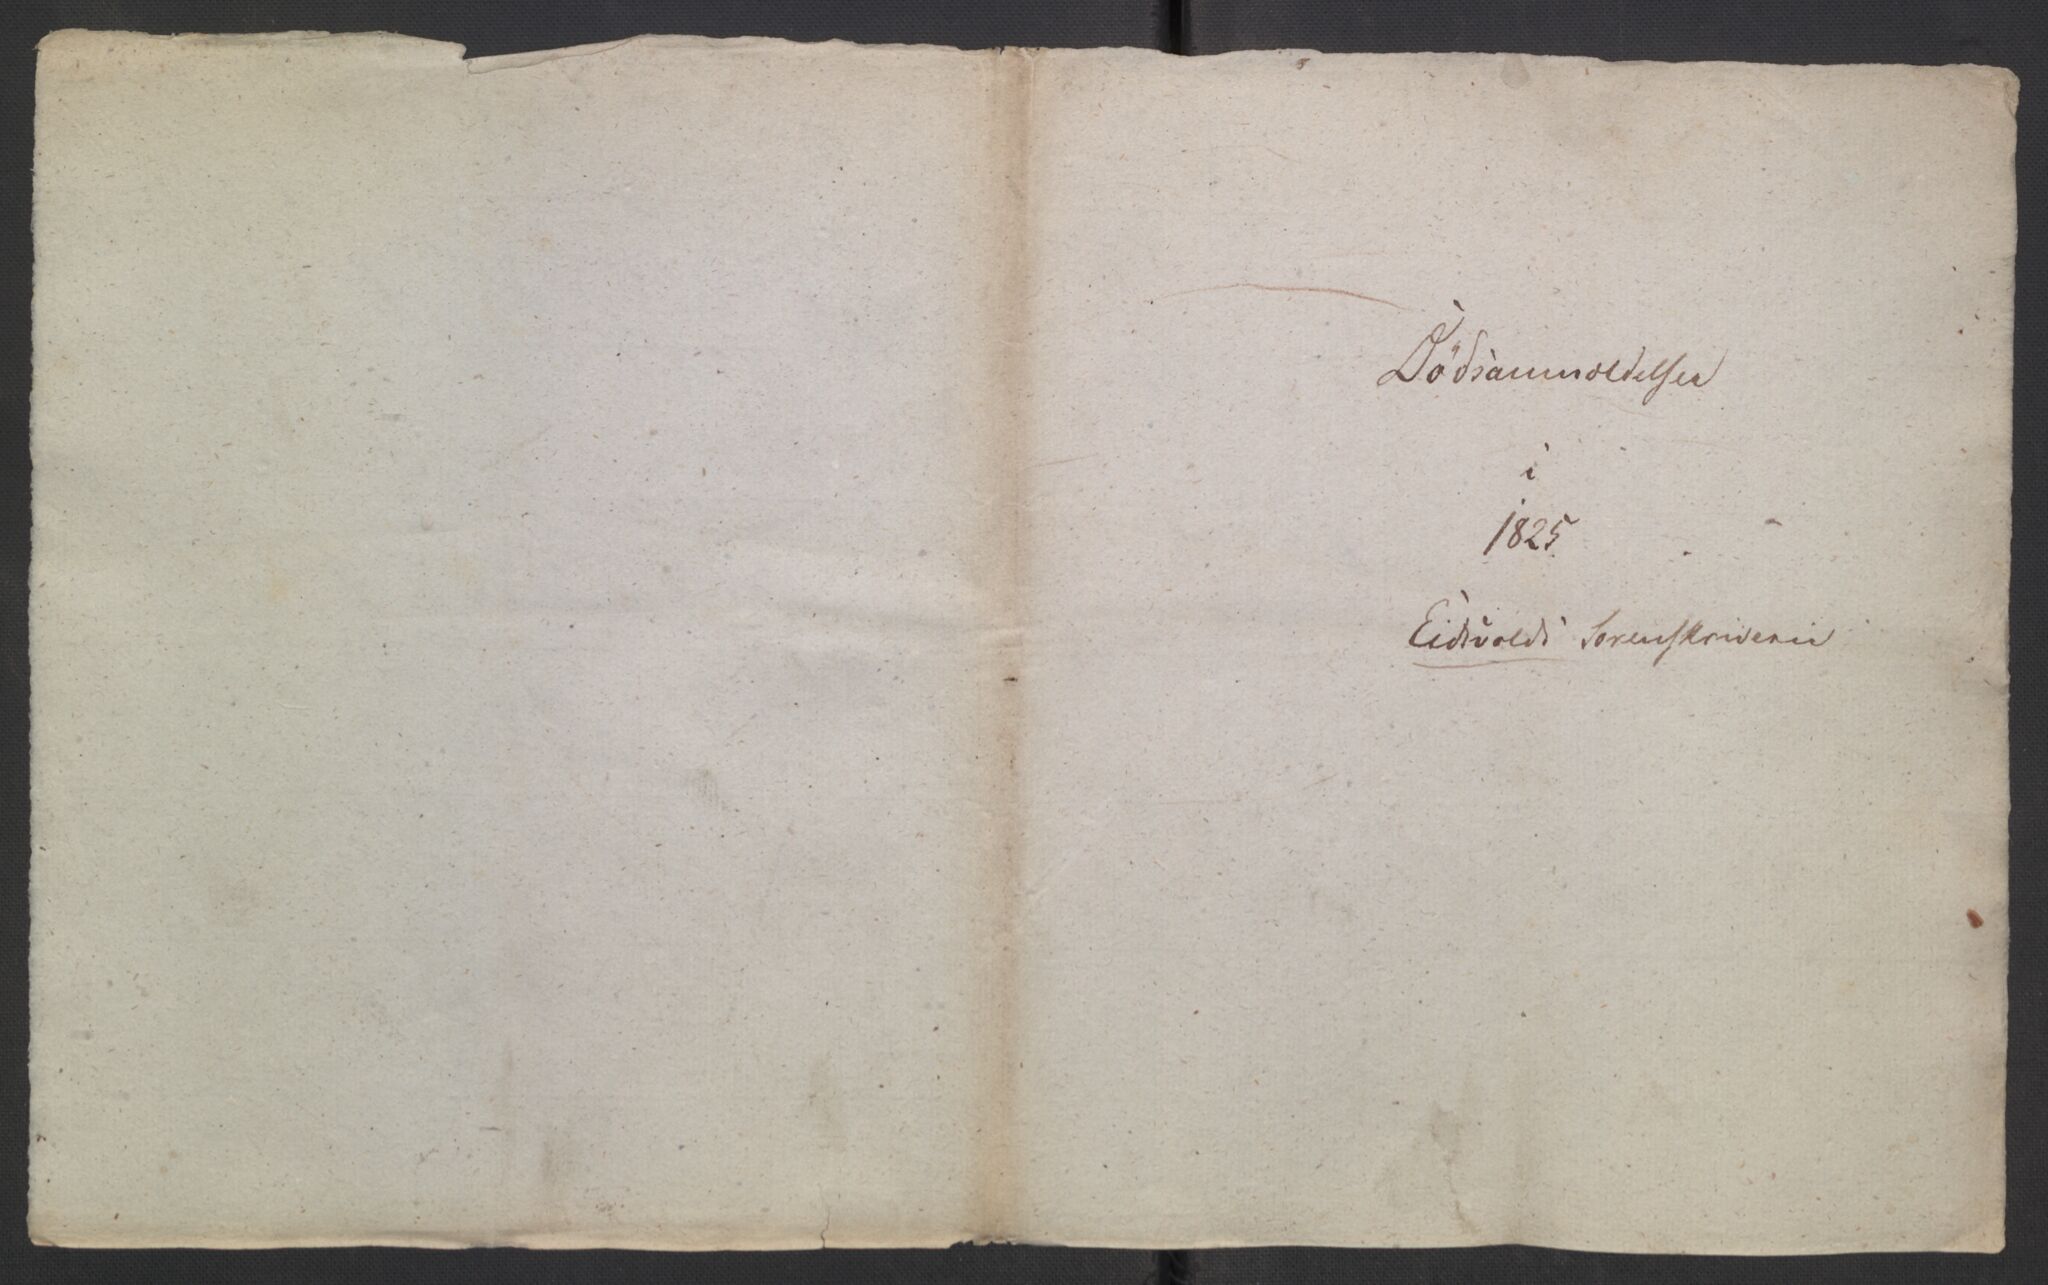 Dödsanmeldelser
i
1825
Eidsvolds Sorenskriverie